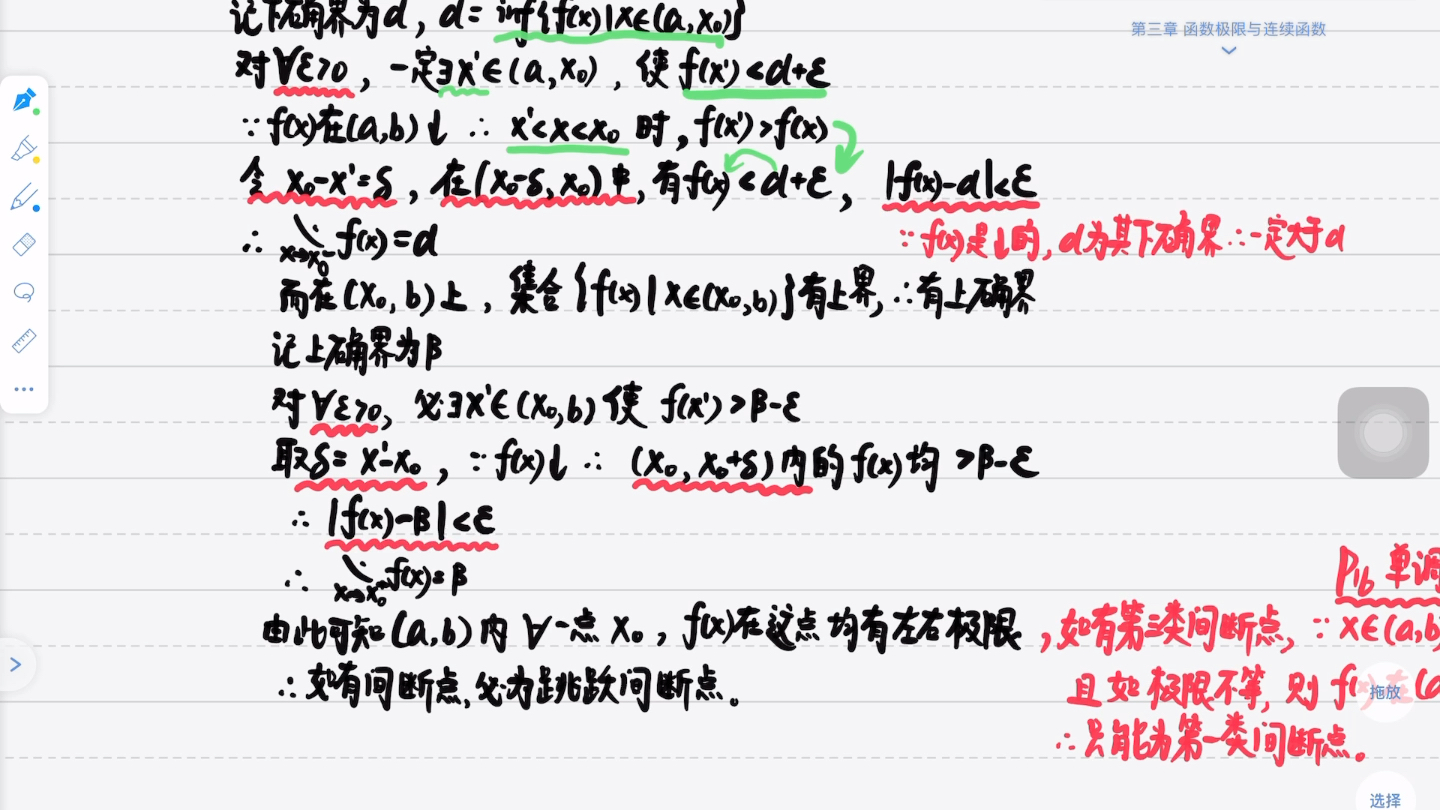 第三章 函数极限与连续函数
记下确界为α, α= inf{f(x)|x∈(a,x₀)}
对∀ε>0, 一定∃x'∈(a,x₀), 使f(x')<α+ε
∵f(x)在(a,b)↓ ∴ x'<x<x₀ 时, f(x')>f(x)
令 x₀-x'=δ, 在(x₀-δ,x₀)中, 有f(x)<α+ε, |f(x)-α|<ε
∵ f(x)是↓的, α为其下确界∴一定大于α
∴ x→x₀⁻ f(x)=α
而在(x₀,b)上, 集合{f(x)|x∈(x₀,b)}有上界, ∴有上确界
记上确界为β
对∀ε>0, 必∃x'∈(x₀,b)使 f(x')>β-ε
取δ= x'-x₀, ∵f(x)↓ ∴ (x₀,x₀+δ)内的f(x)均 >β-ε
∴ |f(x)-β|<ε
∴ x→x₀⁺ f(x)=β
P16 单调
由此可知(a,b)内∀一点x₀, f(x)在这点均有左右极限, 如有第二类间断点, ∵x∈(a,b)
∴如有间断点,必为跳跃间断点。 且如极限不等, 则f(x)在(a
∴只能为第一类间断点。
拖放
选择